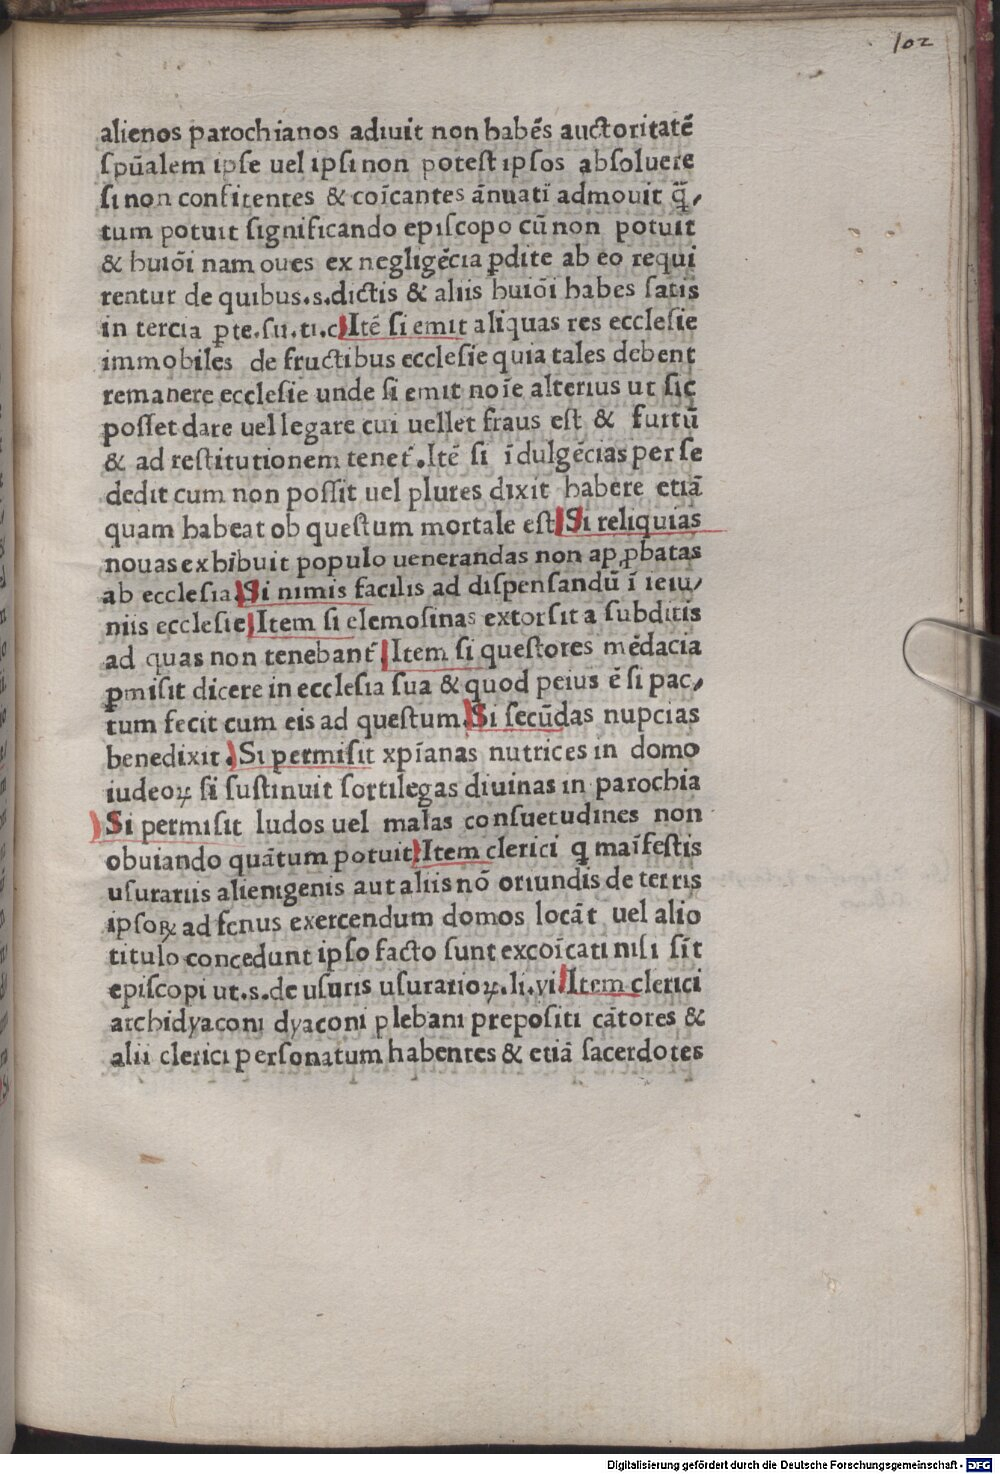 102
alienos parochianos adiuit non habēs auctoritatē
ſpūalem ipſe uel ipſi non poteſt ipſos abſoluere
ſi non confitentes & coīcantes ānuatī admouit q̄,
tum potuit ſignificando epiſcopo cū non potuit
& huiōi nam oues ex negligēcia ꝑdite ab eo requi
rentur de quibus.s.dictis & aliis huiōi habes ſatis
in tercia ꝑte.ſu.ti.c Itē ſi emit aliquas res eccleſie
immobiles de fructibus eccleſie quia tales debent
remanere eccleſie unde ſi emit noīe alterius ut ſic
poſſet dare uel legare cui uellet fraus eſt & furtū
& ad reſtitutionem tenet̄.Itē ſi īdulgēcias per ſe
dedit cum non poſſit uel plures dixit habere etiā
quam habeat ob queſtum mortale eſt Si reliquias
nouas exhibuit populo uenerandas non apꝓbatas
ab eccleſia.Si nimis facilis ad diſpenſandū ī ieiu,
niis eccleſie Item ſi elemoſinas extorſit a ſubditis
ad quas non tenebant̄.Item ſi queſtores mēdacia
ꝑmiſit dicere in eccleſia ſua & quod peius ē ſi pac,
tum fecit cum eis ad queſtum.Si ſecūdas nupcias
benedixit.Si permiſit xpīanas nutrices in domo
iudeoꝝ ſi ſuſtinuit ſortilegas diuinas in parochia
Si permiſit ludos uel malas conſuetudines non
obuiando quātum potuit Item clerici q maīfeſtis
uſurariis alienigenis aut aliis nō oriundis de terris
ipſoꝝ ad fenus exercendum domos locāt uel alio
titulo concedunt ipſo facto ſunt excoīcati niſi ſīt
epiſcopi ut.s.de uſuris uſurarioꝝ.li.vi Item clerici
archidyaconi dyaconi plebani prepoſiti cātores &
alii clerici perſonatum habentes & etiā ſacerdotes
Digitalisierung gefördert durch die Deutsche Forschungsgemeinschaft - DFG